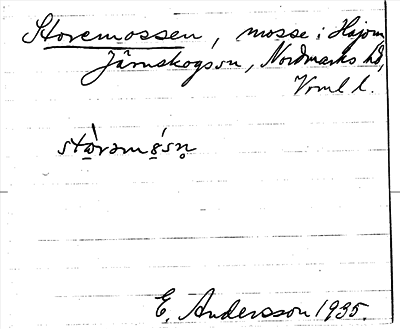 Storemossen, mosse i Hajom
Järnskogs sn, Nordmarks hd,
Vrml l.
stɷ̀rəmɞ́sn̥
E. Andersson 1935.